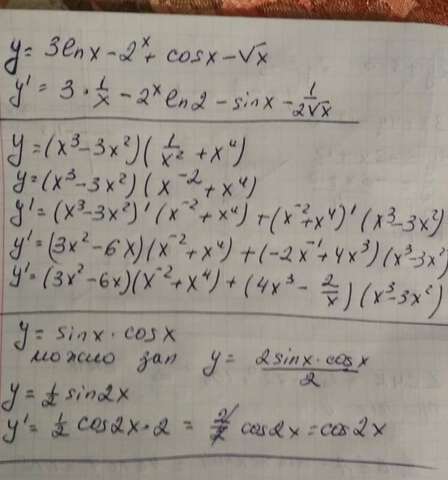 y = 3lnx - 2^x + cosx - √x
y' = 3 · 1/x - 2^x ln2 - sinx - 1/(2√x)
y = (x³ - 3x²)(1/x² + x⁴)
y = (x³ - 3x²)(x⁻² + x⁴)
y' = (x³ - 3x²)'(x⁻² + x⁴) + (x⁻² + x⁴)'(x³ - 3x²)
y' = (3x² - 6x)(x⁻² + x⁴) + (-2x⁻¹ + 4x³)(x³ - 3x²
y' = (3x² - 6x)(x⁻² + x⁴) + (4x³ - 2/x)(x³ - 3x²)
y = sinx · cosx
можно зап y = 2sinx · cosx/2
y = 1/2 sin2x
y' = 1/2 cos2x · 2 = 2/2 cos2x = cos2x